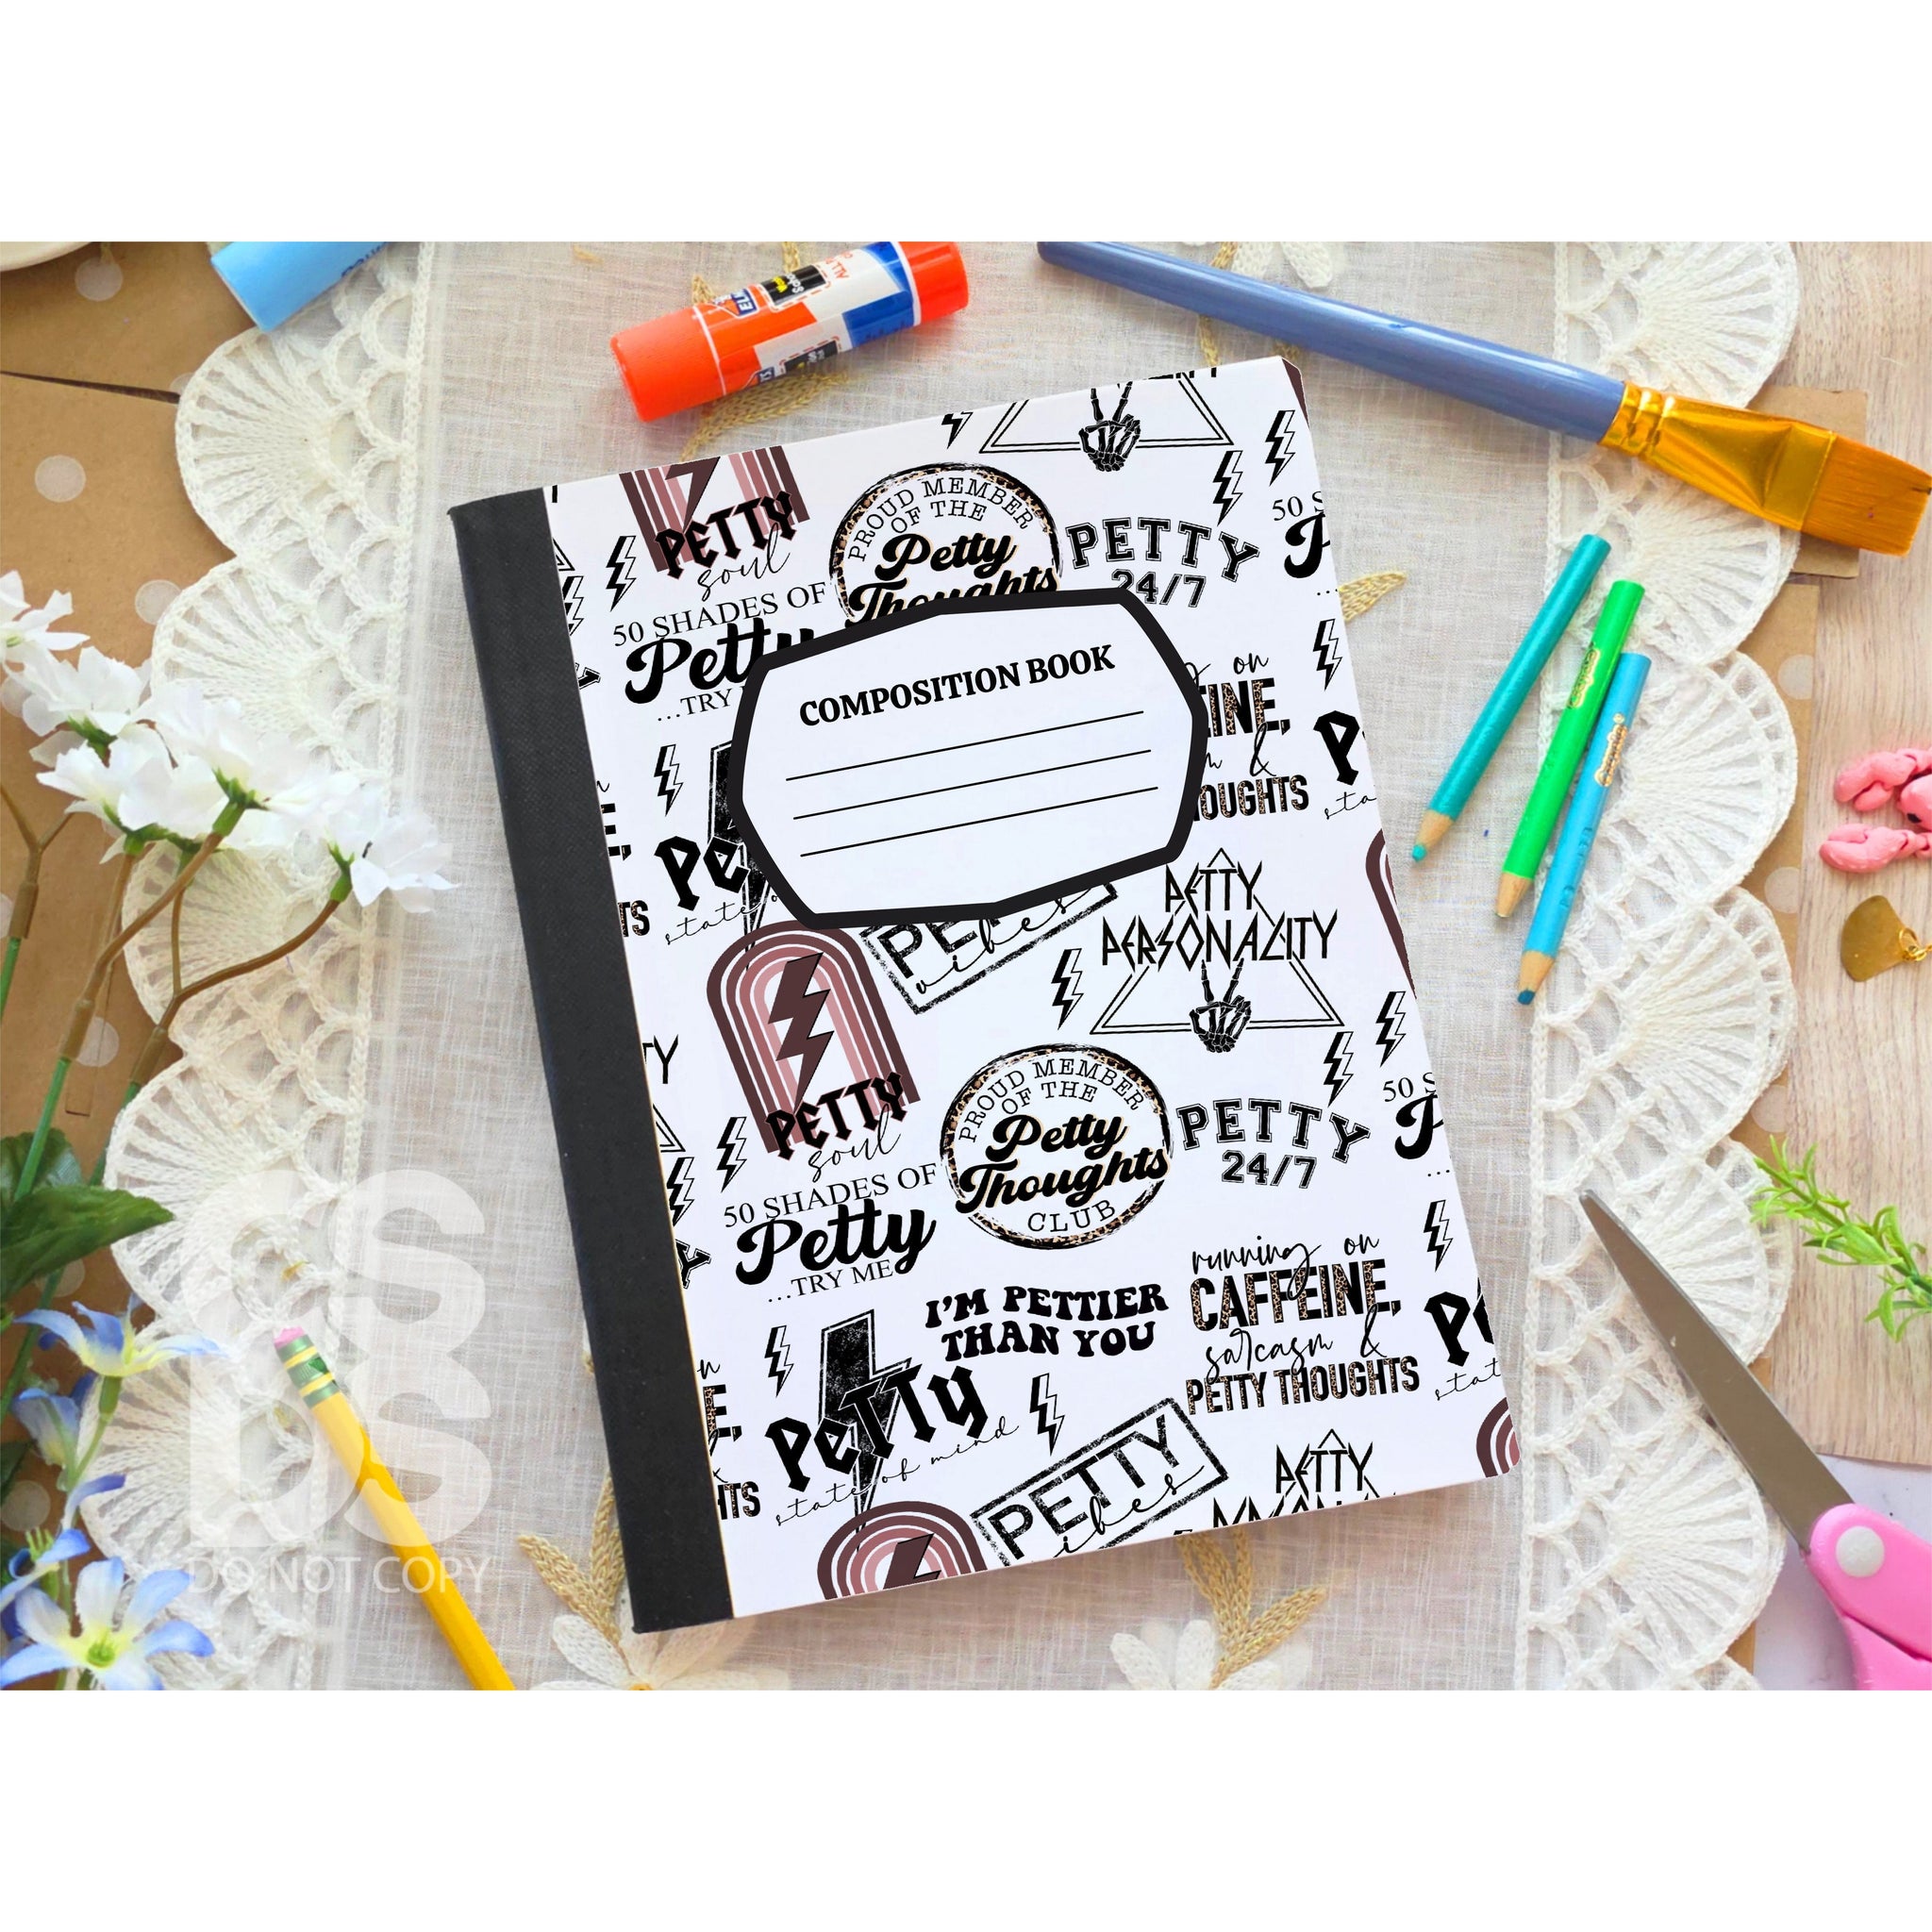 ELMER'S
School
ALL
PETTY
soul
PROUD MEMBER
OF THE
Petty
Thoughts
PETTY
24/7
50 S
P
50 SHADES OF
Petty
...TRY
COMPOSITION BOOK
on
INE,
&
OUGHTS
P
sta
Pe
state o
TS
PETTY
vibes
PETTY
PERSONALITY
TY
PETTY
soul
PROUD MEMBER
OF THE
Petty
Thoughts
CLUB
PETTY
24/7
50 S
P
50 SHADES OF
Petty
...TRY ME
I'M PETTIER
THAN YOU
running on
CAFFEINE,
sarcasm &
PETTY THOUGHTS
Pe
stat
n
E,
HTS
PeTTy
state of mind
PETTY
vibes
PETTY
Crayola
Crayola
DO NOT COPY